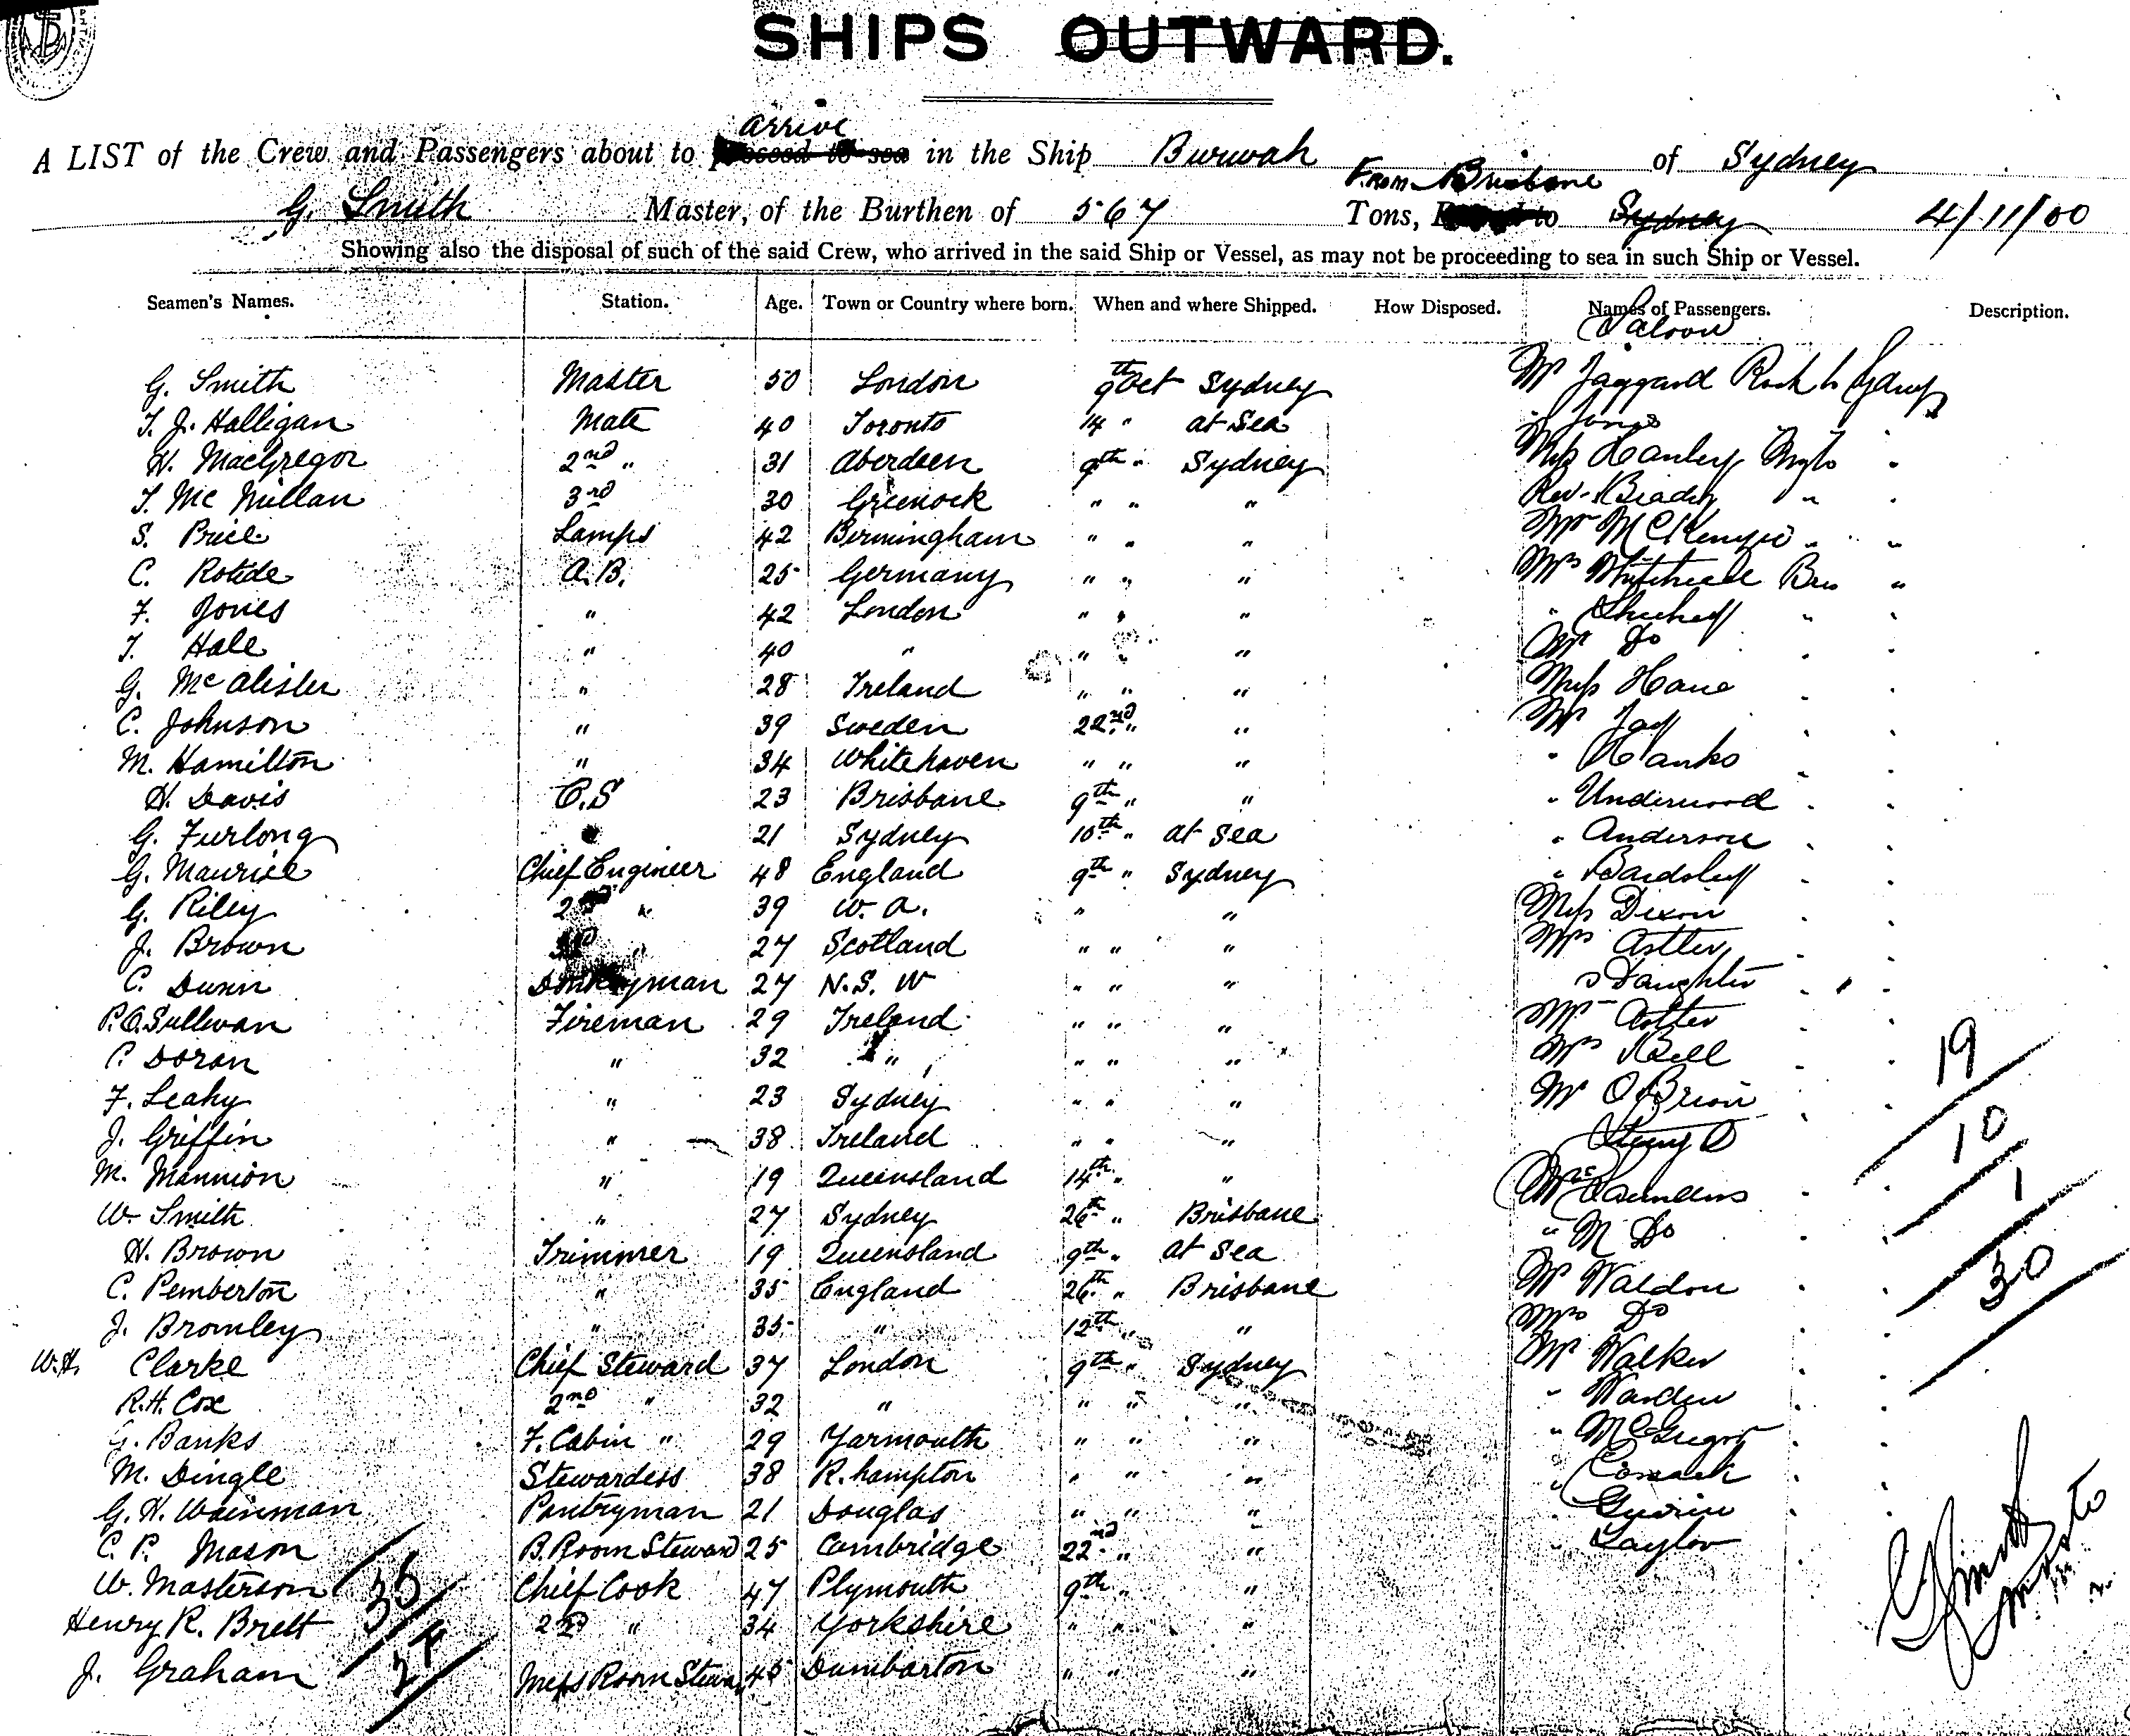 SHIPS OUTWARD.
arrive
A LIST of the Crew and Passengers about to proceed to sea in the Ship Burwah of Sydney
From Brisbane
G. Smith Master, of the Burthen of 567 Tons, to Sydney 4/11/00
Showing also the disposal of such of the said Crew, who arrived in the said Ship or Vessel, as may not be proceeding to sea in such Ship or Vessel.
Seamen's Names. Station. Age. Town or Country where born. When and where Shipped. How Disposed. Names of Passengers. Description.
Saloon
G. Smith Master 50 London 9th Oct Sydney Mr Jaggard Rock to Sydney
T. J. Halligan Mate 40 Toronto 14 " at Sea " Jones
H. MacGregor 2nd " 31 Aberdeen 9th " Sydney Miss Hanley "
T. McMillan 3rd 30 Greenock " " " Rev. " "
S. Price Lamps 42 Birmingham " " " Mr McKenzie " "
C. Rotide A.B. 25 Germany " " " Mrs Whitehead Bris "
F. Jones " 42 London " " " " " "
T. Hale " 40 " " " " Mr Do " "
G. McAlister " 28 Ireland " " " Miss Hane " "
C. Johnson " 39 Sweden 22nd " " Mr Jay " "
M. Hamilton " 34 Whitehaven " " " " Hanks " "
H. Davis O.S 23 Brisbane 9th " " " Underwood " "
G. Furlong " 21 Sydney 10th " at Sea " Anderson " "
G. Maurice Chief Engineer 48 England 9th " Sydney " Bardsley " "
G. Riley 2nd " 39 W. A. " " Miss Dixon " "
J. Brown 3rd " 27 Scotland " " " Mrs Astley " "
C. Dunn Donkeyman 27 N.S. W " " " Daughter " "
P. O.Sullivan Fireman 29 Ireland " " " Mr Astley " "
C. Doran " 32 " " " " Mrs Bell " " 19
F. Leahy " 23 Sydney " " " Mr O'Brien " "
J. Griffin " 38 Ireland " " " 10
M. Mannion " 19 Queensland 14th " " Mrs Saunders " " 1
W. Smith " 27 Sydney 26th " Brisbane " M Do " "
H. Brown Trimmer 19 Queensland 9th " at Sea
C. Pemberton " 35 England 26th " Brisbane Mr Waldon " " 30
J. Bromley " 35 " 12th " " Mrs Do " "
W.H. Clarke Chief Steward 37 London 9th " Sydney Mr Walker " "
R.H. Cox 2nd " 32 " " " " " Warden " "
G. Banks F. Cabin " 29 Yarmouth " " " " McGregor " "
M. Dingle Stewardess 38 R.hampton " " " " " "
G. H. Wainman Pantryman 21 Douglas " " " " " "
C. P. Mason B. Room Steward 25 Cambridge 22nd " " " Taylor
W. Masterson 35 Chief Cook 47 Plymouth 9th " "
Henry R. Brett 2nd " 34 Yorkshire " " "
J. Graham Mess Room Stewa 45 Dumbarton " " "
G Smith
Master